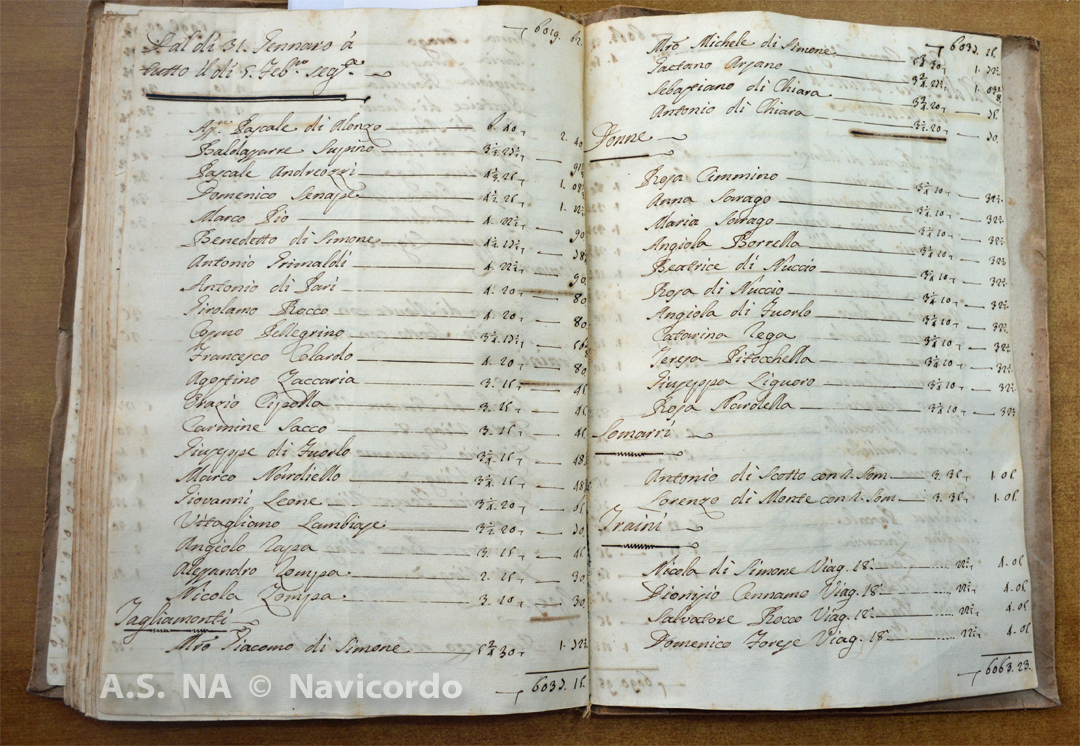 6019. 62.
Dal dì 31. Gennaro à
tutto il dì 5. Feb.ro seg.te
Pascale di Alonzo 6. 40 2. 40
Baldassarre Sapino
Pascale Andreozzi 1. 08
Domenico Senape 1. 12½
Marco Pio 4. 22½ 90
Benedetto di Simone
Antonio Grimaldi 4. 22½ 90
Antonio di Pari 4. 20 80
Girolamo Rocco 4. 20 80
Cosmo Pellegrino
Francesco Colardo 4. 20 80
Agostino Zaccaria 3. 15 45
Orazio Cipolla 3. 15 45
Carmine Sacco 3. 15 45
Giuseppe di Fuorlo 3¼ 15 48
Marco Nardiello 3¼ 15 48
Giovanni Leone 3¼ 20
Vitagliano Lambiase 3½ 20
Angiolo Papa 3. 15 45
Alesandro Zompa 2. 15 30
Nicola Zompa 3. 10 30
Tagliamonti
Mro Giacomo di Simone
6035. 15
6035. 15
Mro Michele di Simone
Gaetano Arpano
Sebastiano di Chiara
Antonio di Chiara
Donne
Rosa Cimmino 3¼ 10 32½
Anna Sorago 3¼ 10 32½
Maria Sorago 3¼ 10 32½
Angiola Borrella 3¼ 10 32½
Beatrice di Nuccio 3¼ 10 32½
Rosa di Nuccio 3¼ 10 32½
Angiola di Fuorlo 3¼ 10 32½
Catarina Rega 3¼ 10 32½
Teresa Pitocchella 3¼ 10 32½
Giuseppa Liguoro 3¼ 10 32½
Rosa Nardella 3¼ 10 32½
Somarri
Antonio di Scotto con 2. Som. 3. 35 1. 05
Lorenzo di Monte con 2. Som. 3. 35 1. 05
Traini
Nicola di Simone Viag. 18 22½ 4. 05
Dionisio Cennamo Viag. 18 22½ 4. 05
Salvatore Rocco Viag. 18 22½ 4. 05
Domenico Forese Viag. 18 22½ 4. 05
6063. 23.
A.S. NA © Navicordo